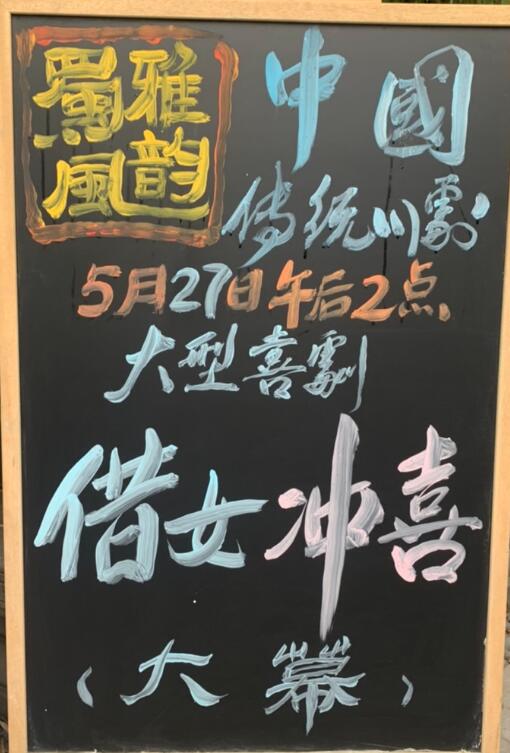 蜀風雅韵
中國
传统川劇
5月27日午后2点
大型喜劇
借女冲喜
(大幕)